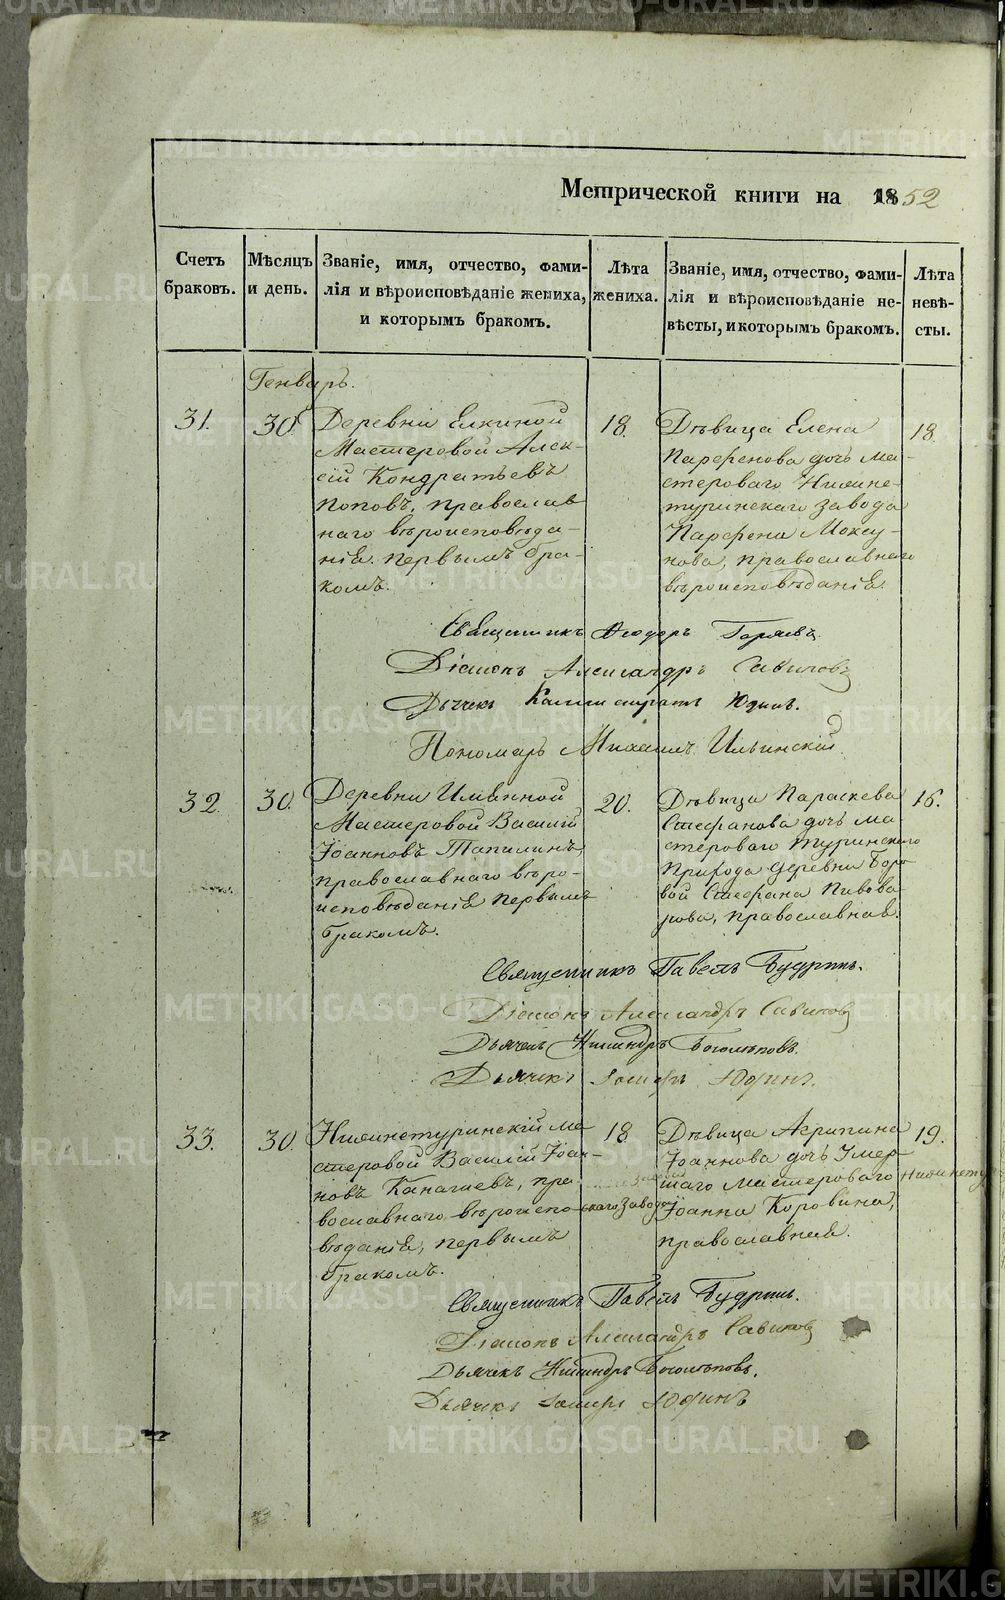 METRIKI.GASO-URAL.RU
Метрической книги на 1852
Счетъ браковъ.
Мѣсяцъ и день.
Званіе, имя, отчество, фами-
лія и вѣроисповѣданіе жениха,
и которымъ бракомъ.
Лѣта жениха.
Званіе, имя, отчество, фами-
лія и вѣроисповѣданіе не-
вѣсты, и которымъ бракомъ.
Лѣта невѣ-
сты.
Генварь.
31.
30.
Деревни Елкиной
Мастеровой Алек-
сій Кондратьевъ
Поповъ, православ
наго вѣроисповѣда-
нія. первымъ бра-
комъ.
18.
Дѣвица Елена
Парфенова дочь ма-
стероваго Нижне-
туринскаго завода
Парфена Моксу-
нова, православнаго
вѣроисповѣданія.
18.
Священникъ Ѳеодоръ
Діаконъ Александръ Савиновъ
Дьячекъ Каллистратъ Юдинъ.
Пономарь Михаилъ Ильинскій
32.
30.
Деревни Именной
Мастеровой Василій
Іоанновъ Тапилинъ,
православнаго вѣро-
исповѣданія первымъ
бракомъ.
20.
Дѣвица Параскева
Стефанова дочь ма
стероваго Туринскаго
деревни Боро
вой Стефана Пивова
рова, православная.
16.
Священникъ Павелъ Будринъ.
Діаконъ Александръ Савиновъ
Дьячекъ Никандръ Боголѣповъ.
Дьячекъ Юдинъ.
33.
30.
Нижнетуринскій ма
стеровой Василій Іоан-
новъ Канашевъ, пра
вославнаго вѣроиспо-
вѣданія, первымъ
бракомъ.
18.
Дѣвица Агрипина
Іоаннова дочь Умер-
шаго Мастероваго Нижнету
скаго завода Іоанна Коровина,
православная.
19.
Священникъ Павелъ Будринъ.
Діаконъ Александръ Савиновъ
Дьячекъ Никандръ Боголѣповъ.
Дьячекъ Юдинъ